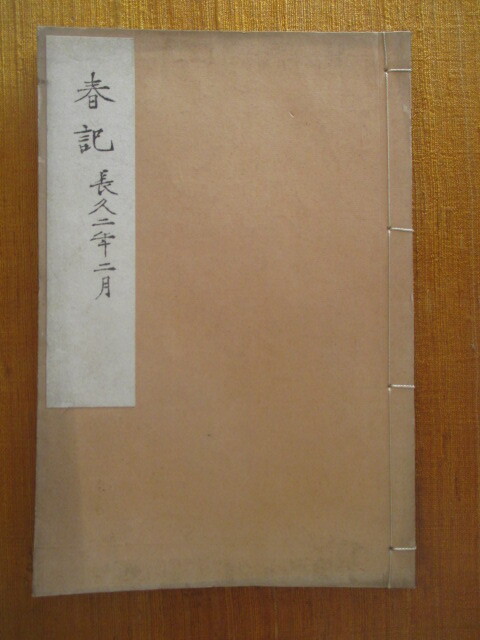 春記
長久二年二月